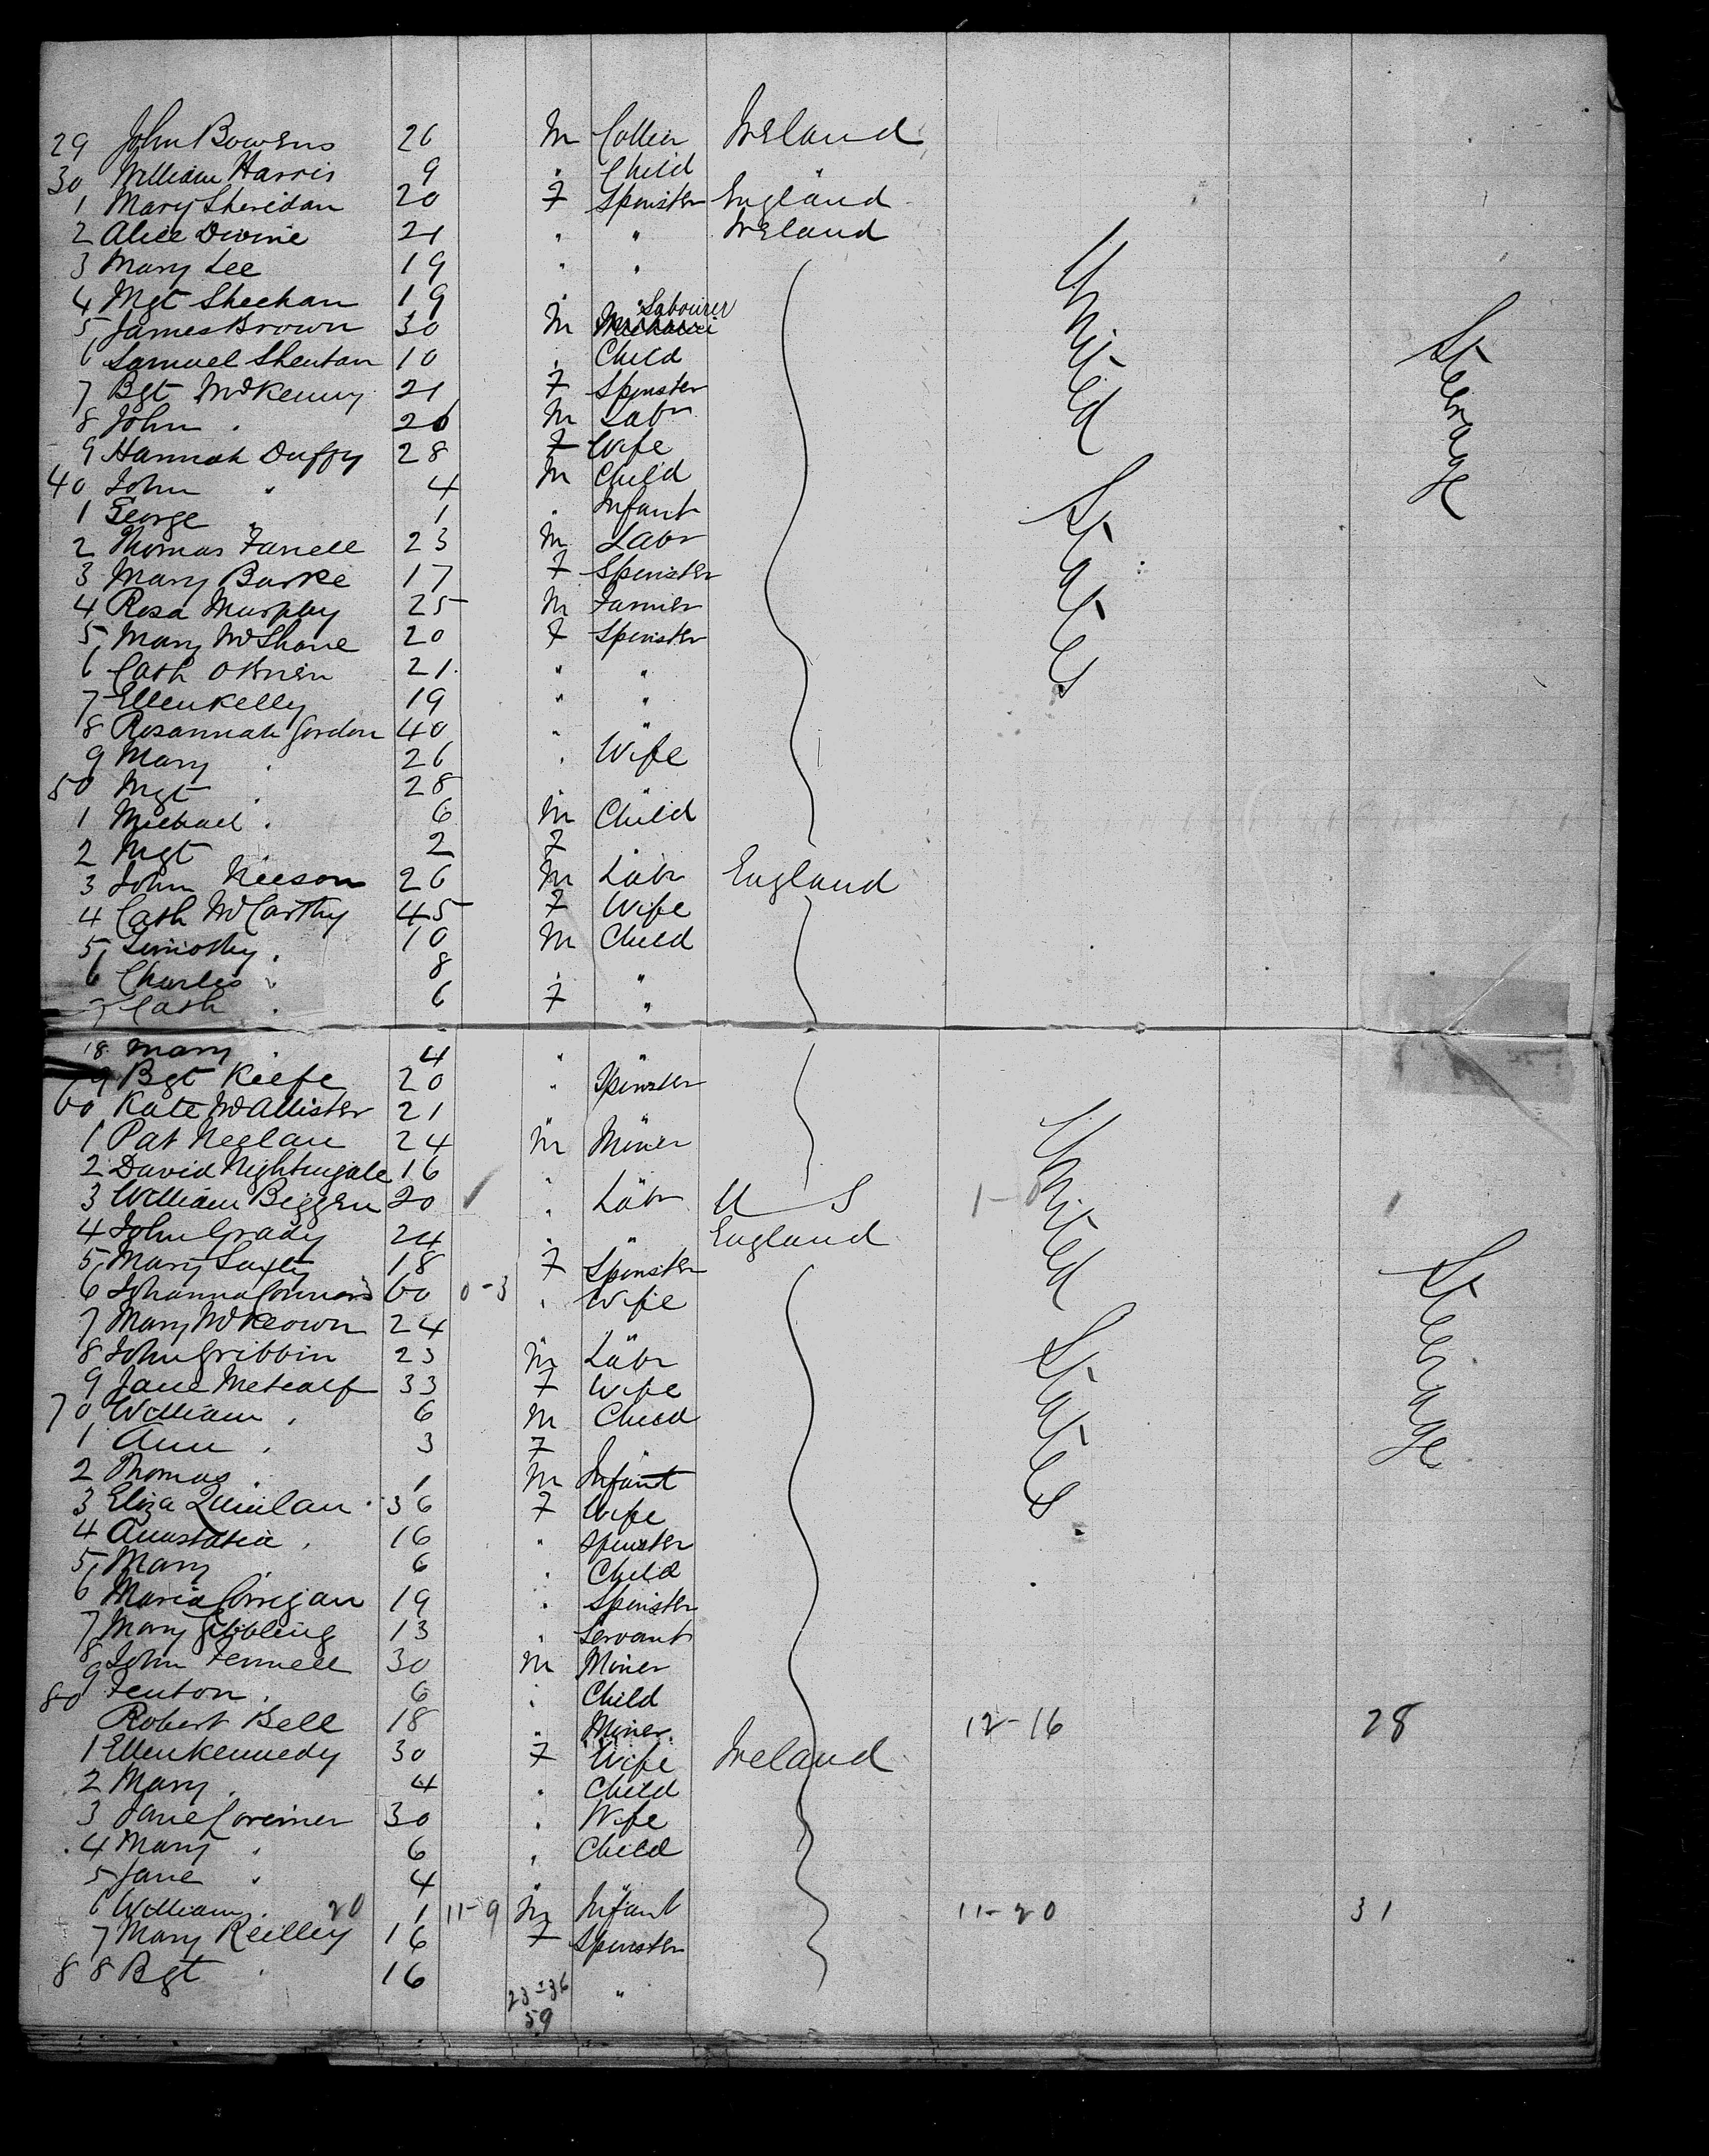 29 John Bowens 26 M Collier Ireland
30 William Harris 9 " Child "
1 Mary Sheridan 20 F Spinster England
2 Alice Divine 21 " " Ireland
3 Mary Lee 19 " "
4 Mgt Sheehan 19 " "
5 James Brown 30 M Labourer
6 Samuel Shentan 10 " Child
7 Bgt McKenny 21 F Spinster
8 John " 26 M Labr
9 Hannah Duffy 28 F Wife
40 John " 4 M Child
1 George " 1 " Infant
2 Thomas Farrell 23 M Labr
3 Mary Burke 17 F Spinster
4 Rosa Murphy 25 M Farmer
5 Mary McShane 20 F Spinster
6 Cath OBrien 21 " "
7 Ellen Kelly 19 " "
8 Rosannah Gordon 40 " "
9 Mary " 26 " Wife
50 Mgt " 28 " "
1 Michael " 6 M Child
2 Mgt " 2 F "
3 John Neeson 26 M Labr England
4 Cath McCarthy 45 F Wife
5 Timothy " 10 M Child
6 Charles " 8 " "
7 Cath " 6 F "
United States
Steerage
18 Mary " 4 " "
9 Bgt Keefe 20 " Spinster
60 Kate McAllister 21 " "
1 Pat Neglan 24 M Miner
2 David Nightingale 16 " "
3 William Biggen 20 " Labr U S 1-0 1
4 John Grady 24 " " England
5 Mary 18 F Spinster
6 Johanna Connors 60 0-3 " Wife
7 Mary McKeown 24 " "
8 John Gribbin 23 M Labr
9 Jane Metcalf 33 F Wife
70 William " 6 M Child
1 Ann " 3 F "
2 Thomas " 1 M Infant
3 Eliza Quinlan 36 F Wife
4 Anastatia " 16 " Spinster
5 Mary 6 " Child
6 Maria Corrigan 19 " Spinster
7 Mary Gibbling 13 " Servant
8 John Fennell 30 M Miner
9 Fenton " 6 " Child
80 Robert Bell 18 " Miner 12-16 28
1 Ellen Kennedy 30 F Wife Ireland
2 Mary " 4 " Child
3 Jane Corimer 30 " Wife
4 Mary " 6 " Child
5 Jane " 4 " "
6 William " 20 1 11-9 M Infant 11-20 31
7 Mary Reilley 16 F Spinster
88 Bgt " 16 "
United States
Steerage
23-36
59